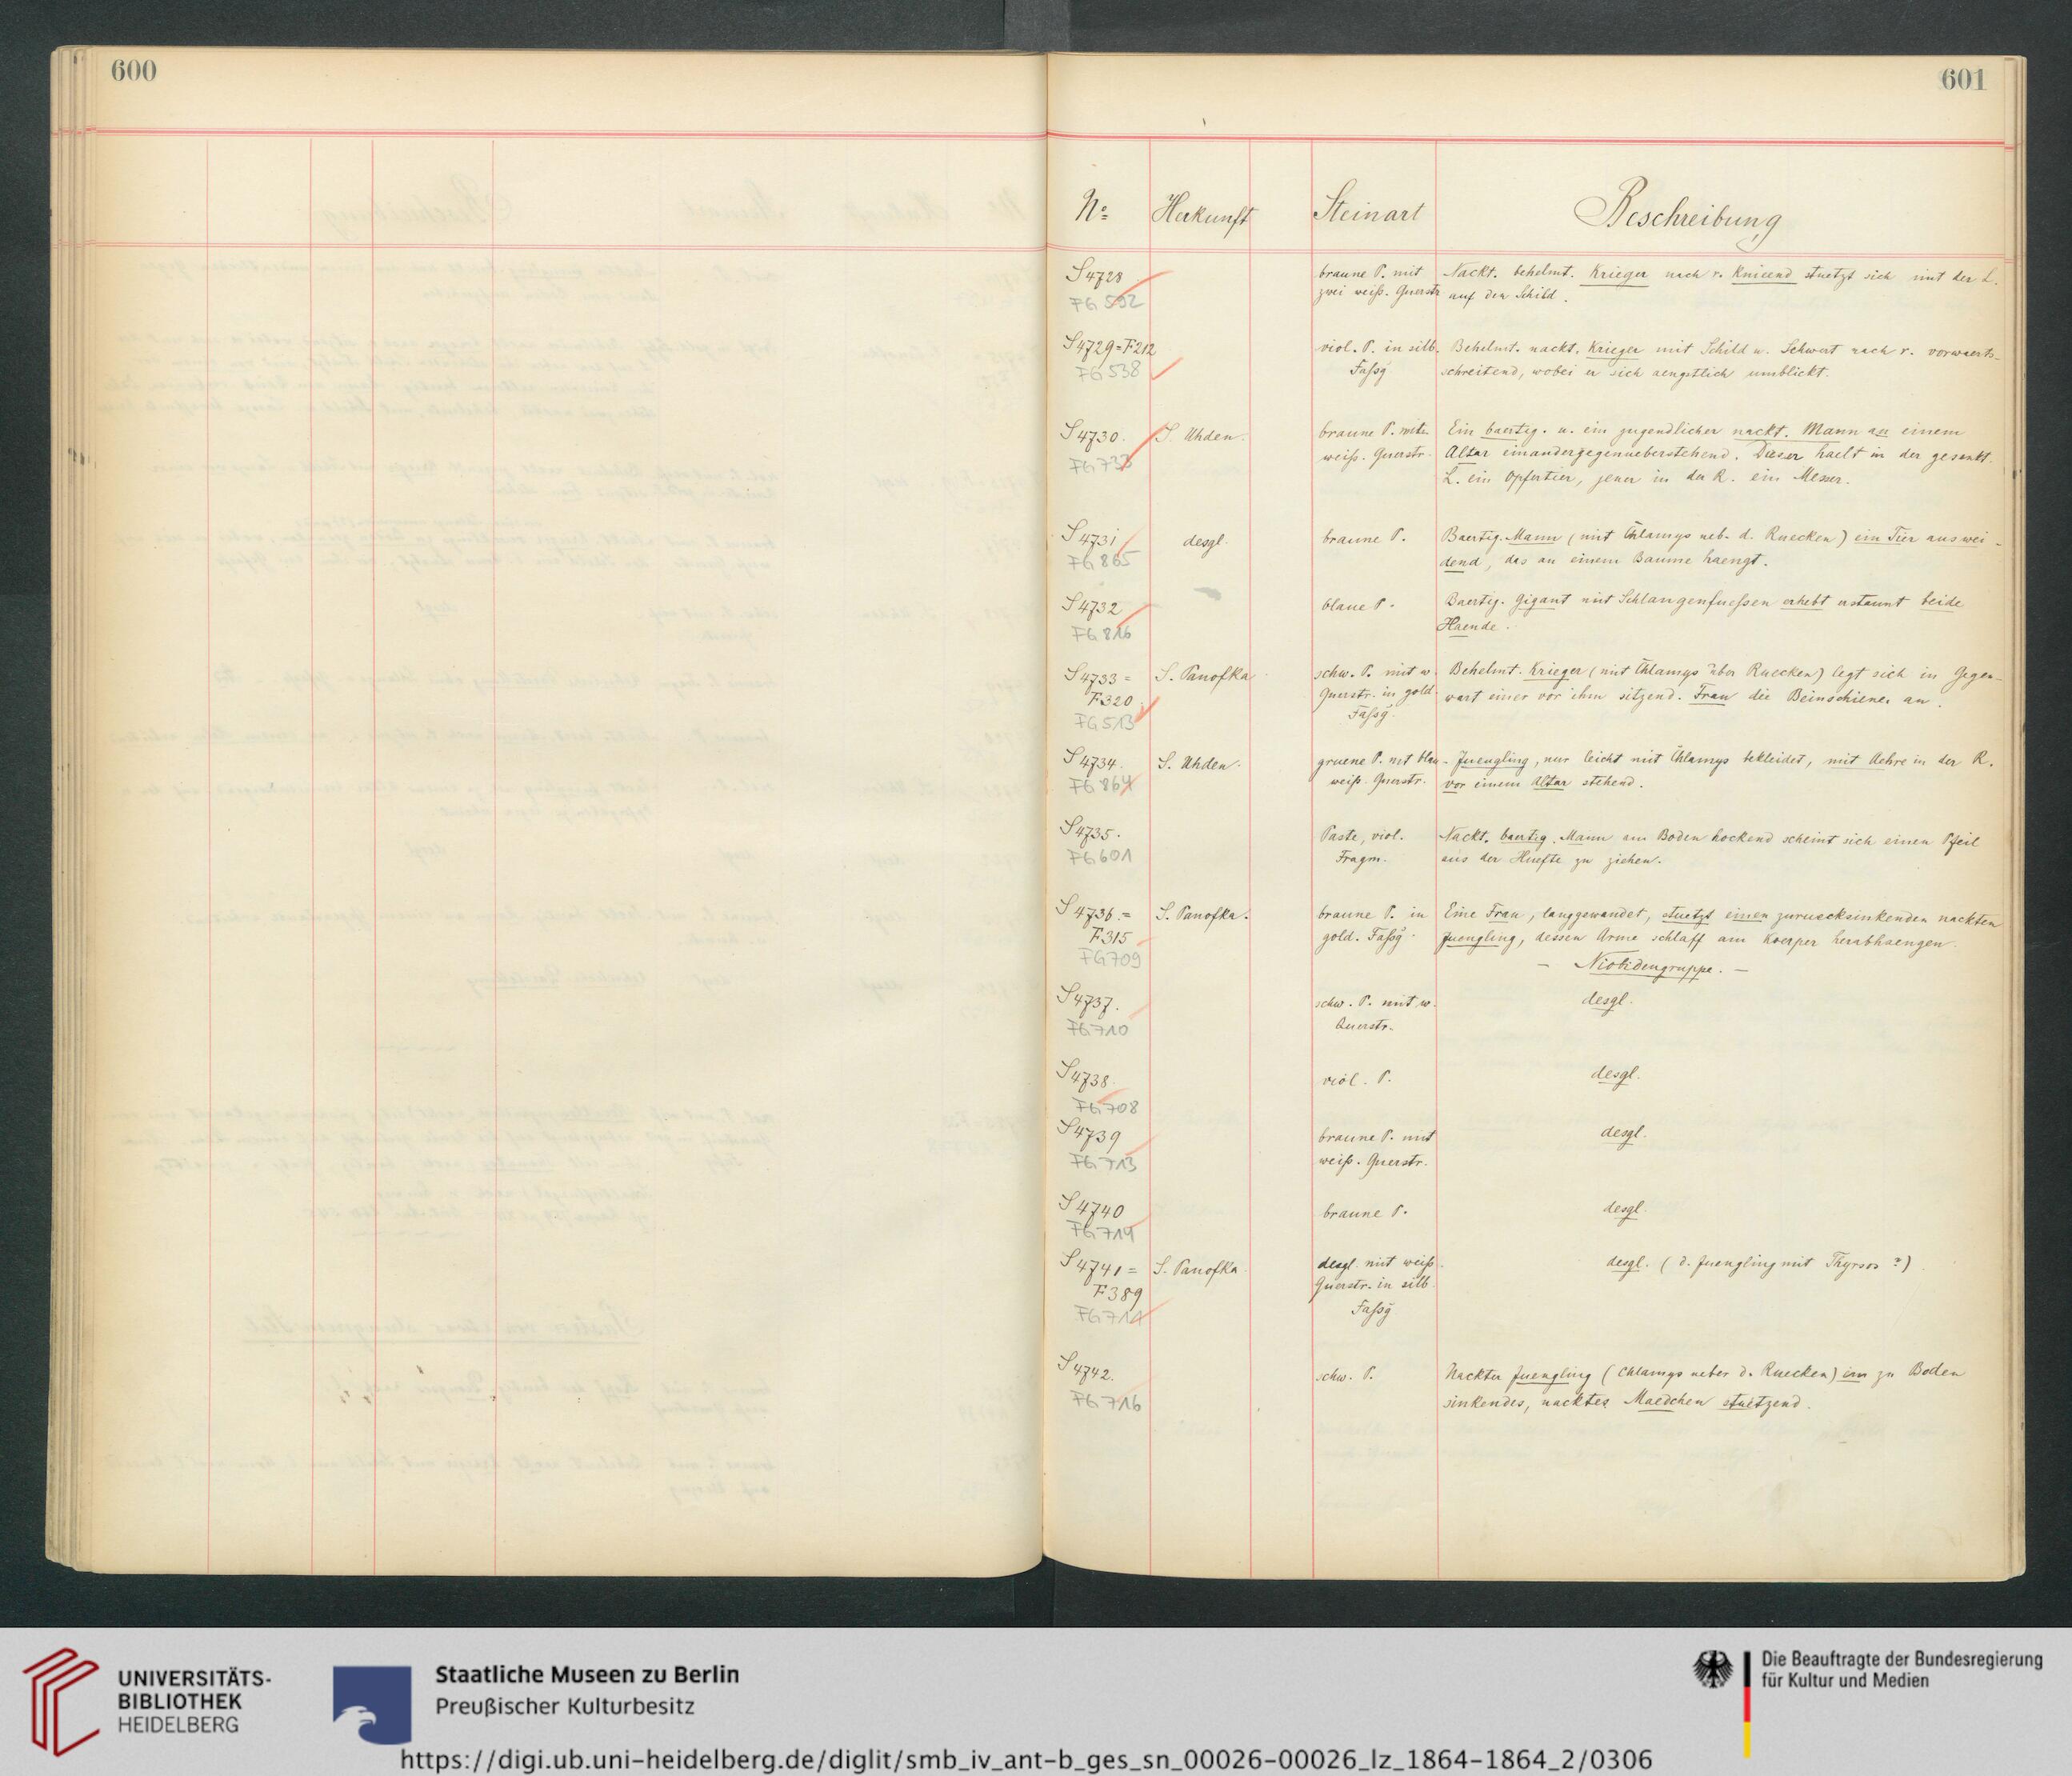 600
601
No Herkunft Steinart Beschreibung
S4728 braune P. mit Nackt. behelmt. Krieger nach r. knieend stuetzt sich mit der L.
FG 592 zwei weiß. Querstr. auf den Schild.
S4729=F212 viol. P. in silb. Behelmt. nackt. Krieger mit Schild u. Schwert nach r. vorwaerts-
FG 538 Faßg schreitend, wobei er sich aengstlich umblickt.
S4730. S. Uhden. braune P. mit Ein baertig. u. ein jugendlicher nackt. Mann an einem
FG 733 weiß. Querstr. Altar einandergegenueberstehend. Dieser haelt in der gesenkt.
L. ein Opfertier, jener in der R. ein Messer.
S4731 desgl. braune P. Baertig. Mann (mit Chlamys ueb. d. Ruecken) ein Tier auswei-
FG 865 dend, das an einem Baume haengt.
S4732 blaue P. Baertig. Gigant mit Schlangenfueßen erhebt erstaunt beide
FG 816 Haende.
S4733 = S. Panofka schw. P. mit w. Behelmt. Krieger (mit Chlamys über Ruecken) legt sich in Gegen-
F320 Querstr. in gold. wart einer vor ihm sitzend. Frau die Beinschienen an.
FG 513 Faßg.
S4734. S. Uhden. gruene P. mit blau- Juengling, nur leicht mit Chlamys bekleidet, mit Aehre in der R.
FG 864 weiß. Querstr. vor einem Altar stehend.
S4735. Paste, viol. Nackt. baertig. Mann am Boden hockend scheint sich einen Pfeil
FG 601 Fragm. aus der Huefte zu ziehen.
S4736.= S. Panofka. braune P. in Eine Frau, langgewandet, stuetzt einen zuruecksinkenden nackten
F315 gold. Faßg. Juengling, dessen Arme schlaff am Koerper herabhaengen.
FG709 – Niobidengruppe. –
S4737. schw. P. mit w. desgl.
FG 710 Querstr.
S4738. viol. P. desgl.
FG 708
S4739 braune P. mit desgl.
FG 713 weiß. Querstr.
S4740 braune P. desgl.
FG 714
S4741 = S. Panofka desgl. mit weiß. desgl. (d. Juengling mit Thyrsos ?)
F389 Querstr. in silb.
FG 711 Faßg
S4742. schw. P. Nackter Juengling (Chlamys ueber d. Ruecken) ein zu Boden
FG 716 sinkendes, nacktes Maedchen stuetzend.
UNIVERSITÄTS-
BIBLIOTHEK
HEIDELBERG
Staatliche Museen zu Berlin
Preußischer Kulturbesitz
Die Beauftragte der Bundesregierung
für Kultur und Medien
https://digi.ub.uni-heidelberg.de/diglit/smb_iv_ant-b_ges_sn_00026-00026_lz_1864-1864_2/0306